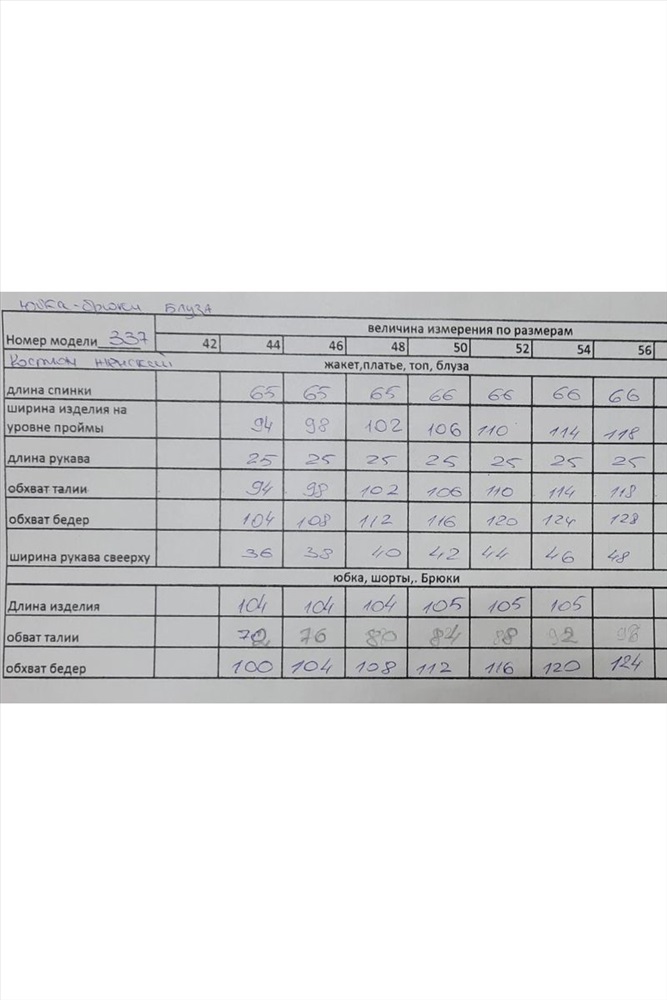 юбка-брюки блуза
величина измерения по размерам
Номер модели 337 42 44 46 48 50 52 54 56
Костюм женский жакет,платье, топ, блуза
длина спинки 65 65 65 66 66 66 66
ширина изделия на
уровне проймы 94 98 102 106 110 114 118
длина рукава 25 25 25 25 25 25 25
обхват талии 94 98 102 106 110 114 118
обхват бедер 104 108 112 116 120 124 128
ширина рукава свеерху 36 38 40 42 44 46 48
юбка, шорты,. Брюки
Длина изделия 104 104 104 105 105 105
обват талии 72 76 80 84 88 92 98
обхват бедер 100 104 108 112 116 120 124